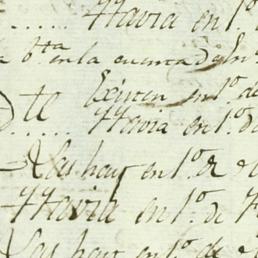 Havia en 1.º
en la cuenta de
te Existen en 1.º de
Havia en 1.º de
Las hay en 1.º de
Havia en 1.º de
Las hay en 1.º de